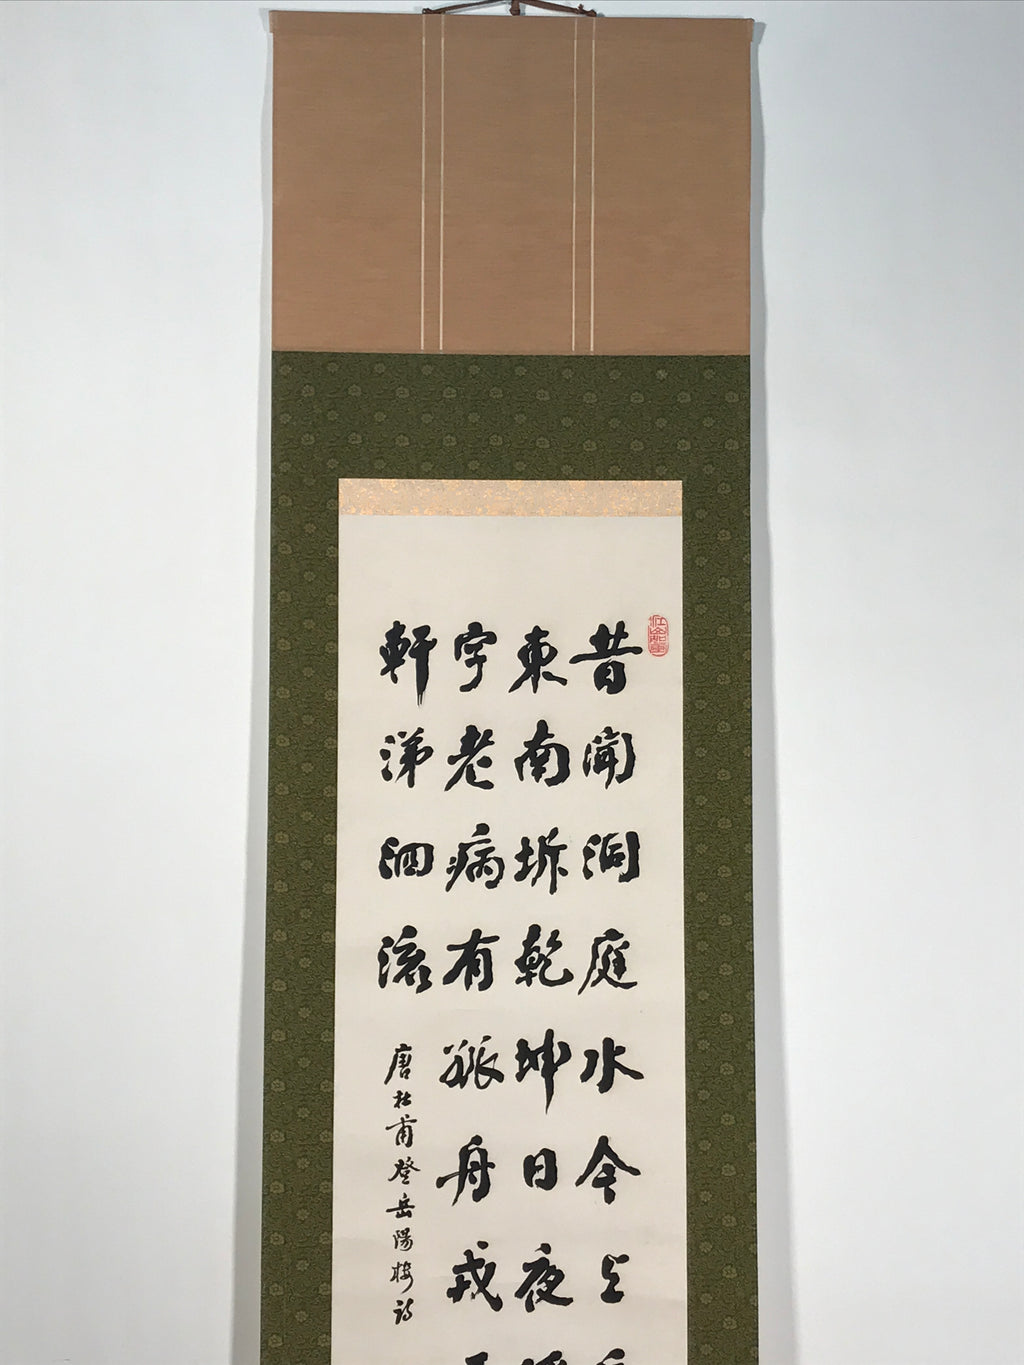 昔聞洞庭水今上
東南坼乾坤日夜
字老病有孤舟戎
軒涕泗流
唐杜甫登岳陽楼詩